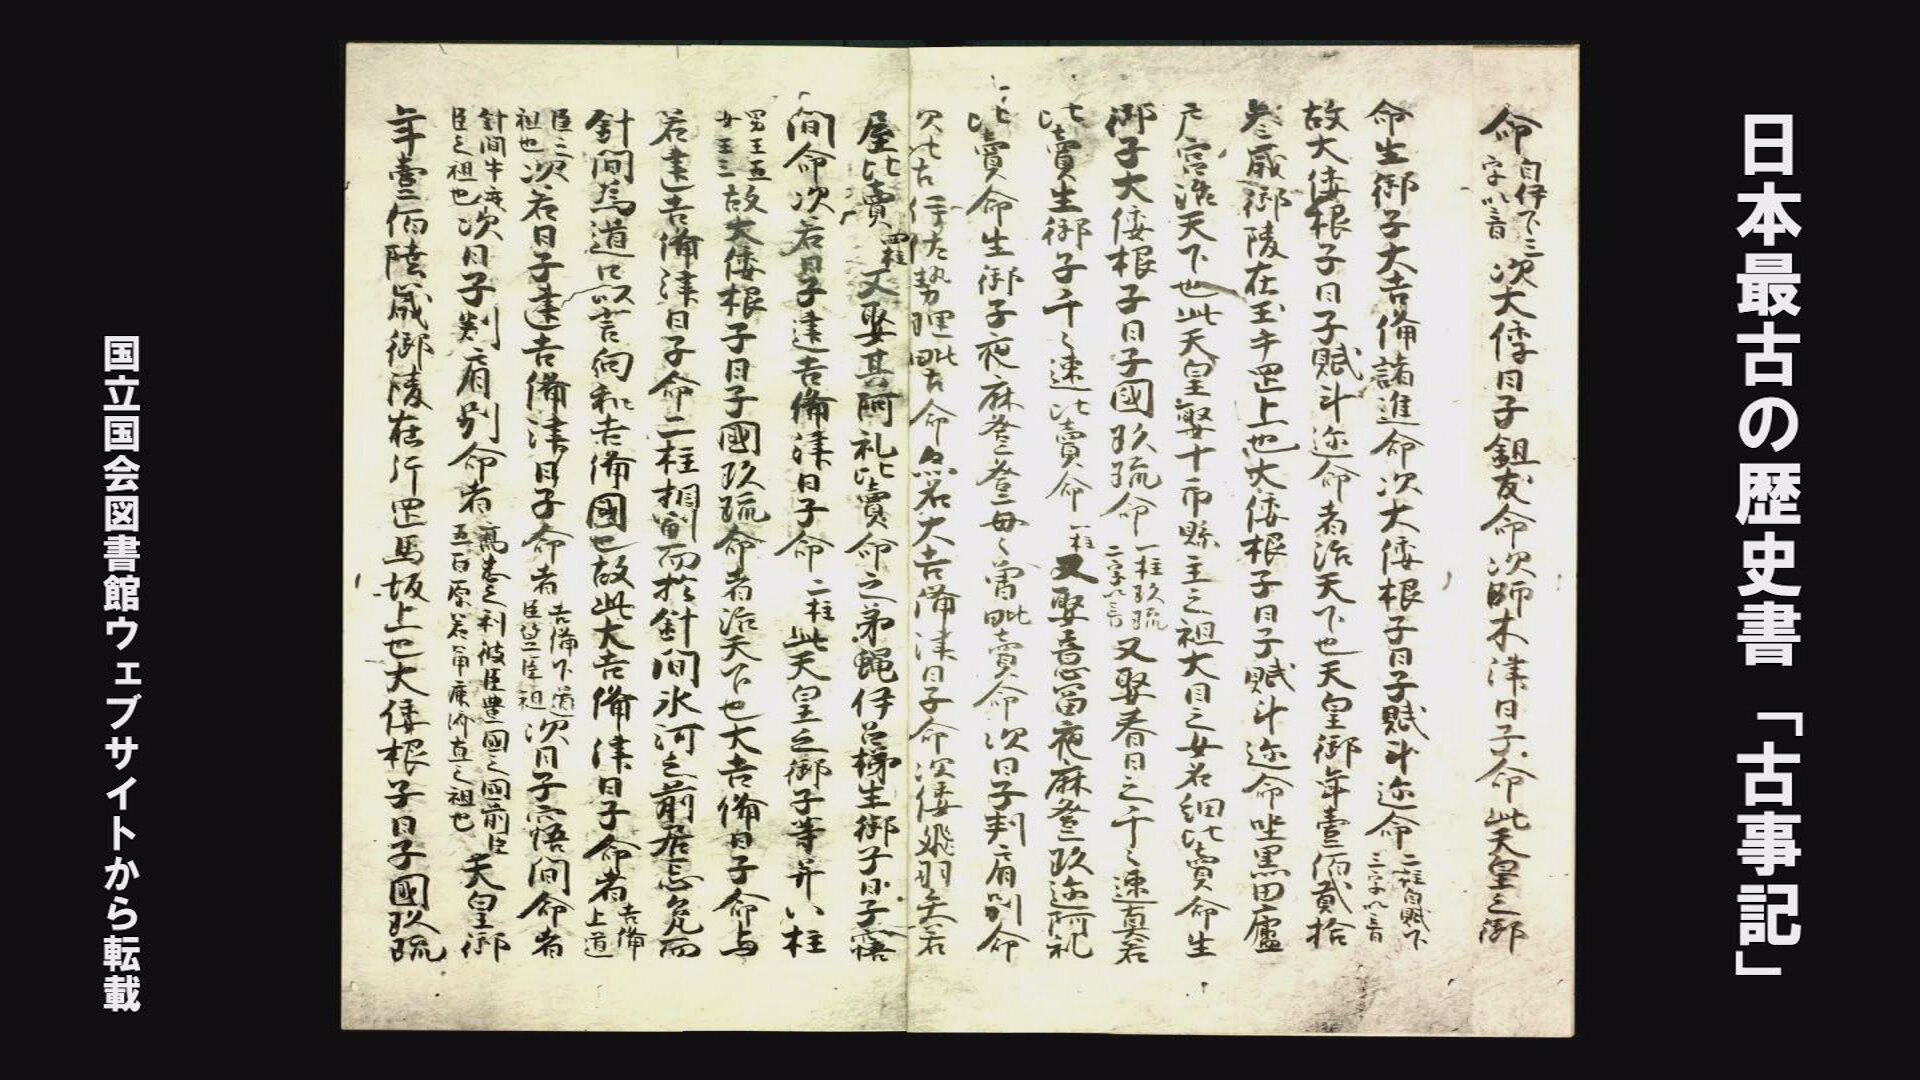 日本最古の歴史書「古事記」
命自伊下三字以音次大倭日子鉏友命次師木津日子命此天皇之御
命生御子大吉備諸進命次大倭根子日子賦斗迩命二柱自賦下三字以音
故大倭根子日子賦斗迩命者治天下也天皇御年壹佰貳拾
參歲御陵在玉手罡上也大倭根子日子賦斗迩命坐黒田廬
戸宮治天下也此天皇娶十市縣主之祖大目之女名細比賣命生
御子大倭根子日子國玖琉命一柱玖琉二字以音又娶春日之千〻速真若
比賣生御子千〻速比賣命一柱又娶意富夜麻登玖迩阿礼
比賣命生御子夜麻登登母〻曽毗賣命次日子刺肩別命
次比古伊佐勢理毗古命亦名大吉備津日子命次倭飛羽矢若
屋比賣四柱又娶其阿礼比賣命之弟蝿伊呂杼生御子日子寤
間命次若日子建吉備津日子命二柱此天皇之御子等并八柱
男王五女王三故大倭根子日子國玖琉命者治天下也大吉備日子命与
若建吉備津日子命二柱相副而於針間氷河之前居忌瓮而
針間為道口以言向和吉備國也故此大吉備津日子命者吉備上道
臣之祖也次若日子建吉備津日子命者吉備下道臣笠臣祖次日子寤間命者
針間牛鹿臣之祖也次日子刺肩別命者高志之利波臣豊國之国前臣五百原君角鹿済直之祖也天皇御
年壹佰陸歲御陵在片罡馬坂上也大倭根子日子國玖琉
国立国会図書館ウェブサイトから転載